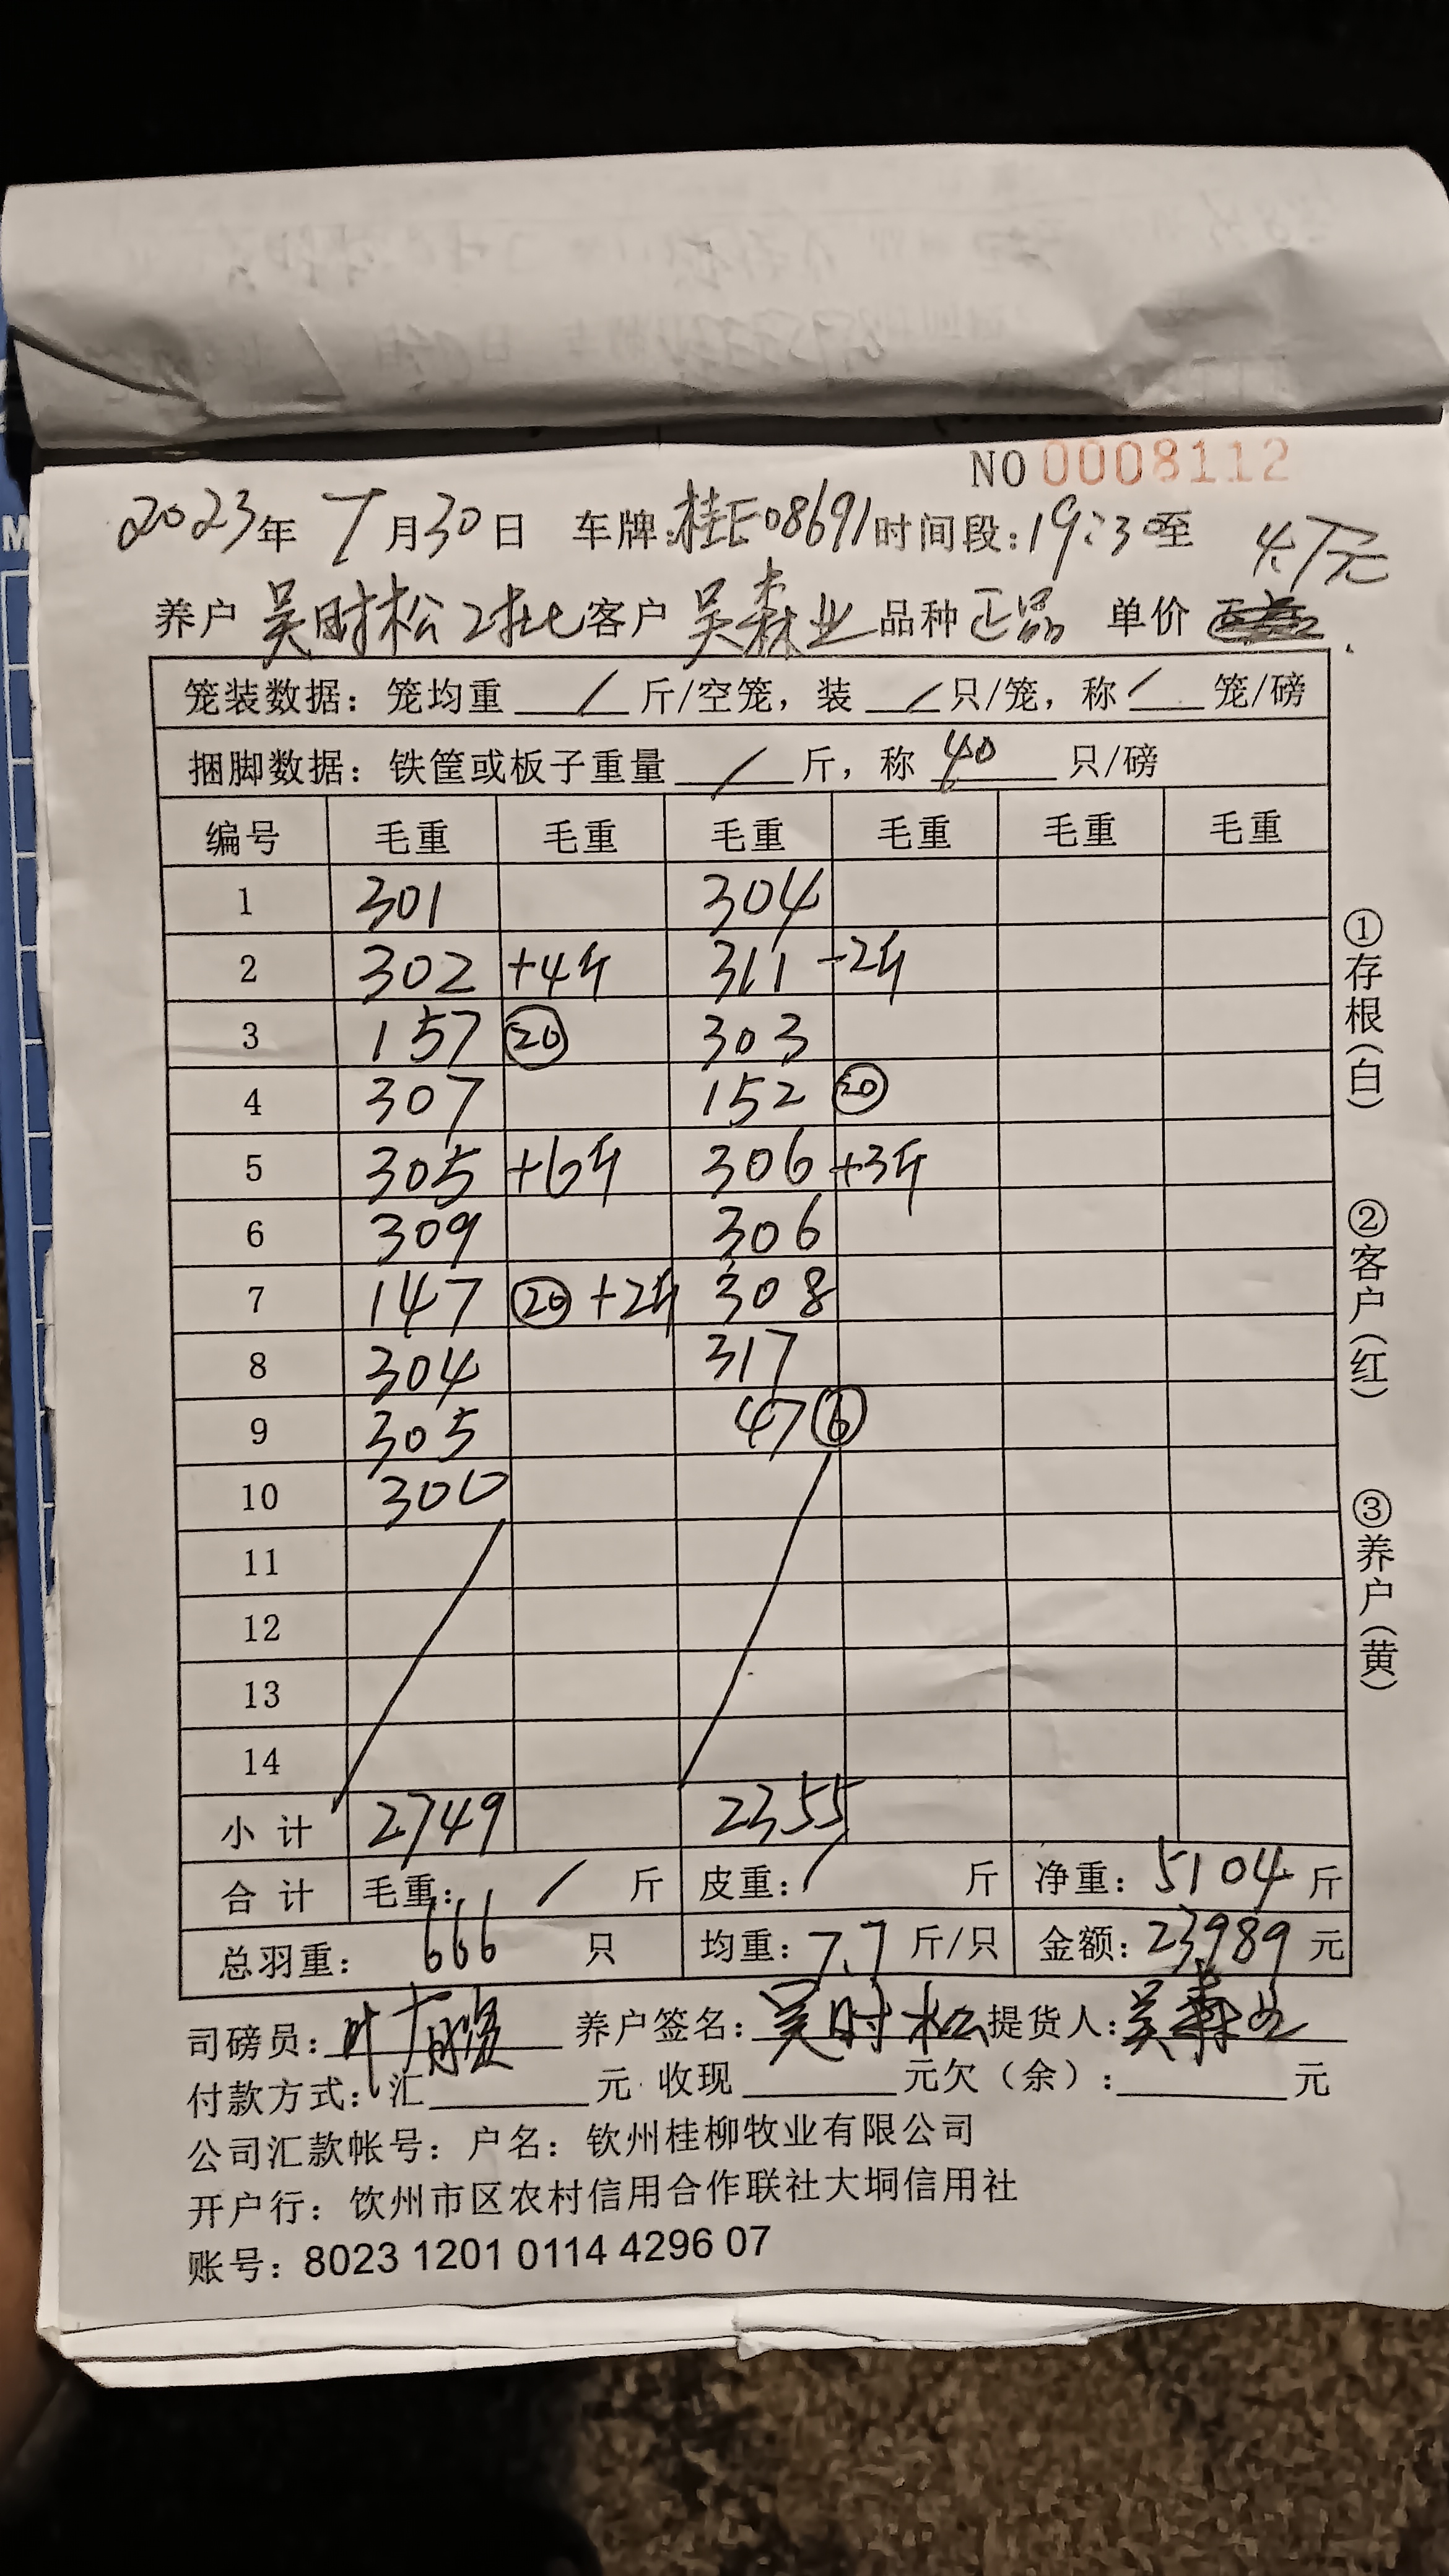 NO 0008112
2023年 7月30日 车牌:桂E08691时间段:19:30至
4.7元
养户 吴时松2批 客户 吴森业 品种 正品 单价
笼装数据: 笼均重 / 斤/空笼, 装 / 只/笼, 称 / 笼/磅
捆脚数据: 铁筐或板子重量 / 斤, 称 40 只/磅
编号 毛重 毛重 毛重 毛重 毛重 毛重
1 301 304
2 302 +4斤 311 -2斤
3 157 ⑳ 303
4 307 152 ⑳
5 305 +6斤 306 +3斤
6 309 306
7 147 ⑳ +2斤 308
8 304 317
9 305 47 ⑥
10 300
11
12
13
14
小计 2749 2355
合计 毛重: / 斤 皮重: / 斤 净重: 5104 斤
总羽重: 666 只 均重: 7.7 斤/只 金额: 23989 元
司磅员: 叶 养户签名: 吴时松 提货人: 吴森业
付款方式: 汇 元 收现 元欠(余): 元
公司汇款帐号: 户名: 钦州桂柳牧业有限公司
开户行: 钦州市区农村信用合作联社大垌信用社
账号: 8023 1201 0114 4296 07
①存根(白)
②客户(红)
③养户(黄)
M